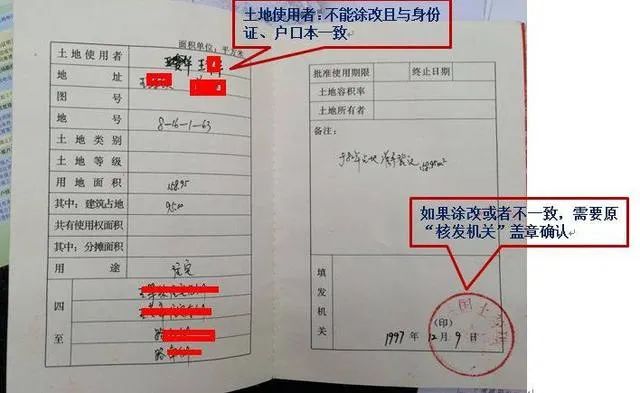 土地使用者：不能涂改且与身份
证、户口本一致
面积单位：平方米
土地使用者
地 址
图 号
地 号 8-16-1-63
土地类别
土地等级
用地面积 158.95
其中：建筑占地 95.00
共有使用权面积
其中：分摊面积
用 途 住宅
四至
批准使用期限 终止日期
土地容积率
土地所有者
备注：
158.95m²
如果涂改或者不一致，需要原
“核发机关”盖章确认
填发机关
国土
（印）
1997 年 12 月 9 日